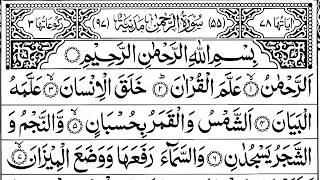 اٰیَاتُهَا ۷۸ (۵۵) سُوْرَةُ الرَّحْمٰنِ مَدَنِیَّةٌ (۹۷) رُكُوْعَاتُهَا ۳
بِسْمِ اللّٰهِ الرَّحْمٰنِ الرَّحِیْمِ
اَلرَّحْمٰنُ ۙ۝۱ عَلَّمَ الْقُرْاٰنَ ؕ۝۲ خَلَقَ الْاِنْسَانَ ۙ۝۳ عَلَّمَهُ
الْبَیَانَ ۝۴ اَلشَّمْسُ وَ الْقَمَرُ بِحُسْبَانٍ ۪۝۵ وَّ النَّجْمُ وَ
الشَّجَرُ یَسْجُدٰنِ ۝۶ وَ السَّمَآءَ رَفَعَهَا وَ وَضَعَ الْمِیْزَانَ ۙ۝۷